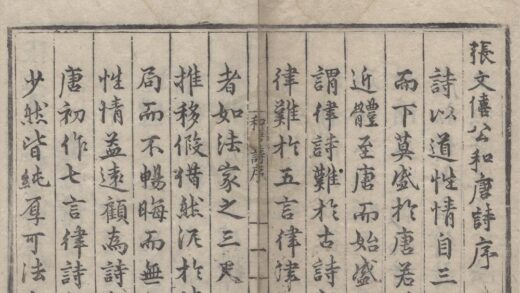 張文僖公和唐詩序
詩以道性情自三
而下莫盛於唐若
近體至唐而始盛
謂律詩難於古詩
律難於五言律
和唐詩序
一
者如法家之三尺
推移假借然泥於
局而不暢晦而無
性情益遠顧為詩
唐初作七言律詩
少然皆純厚可法